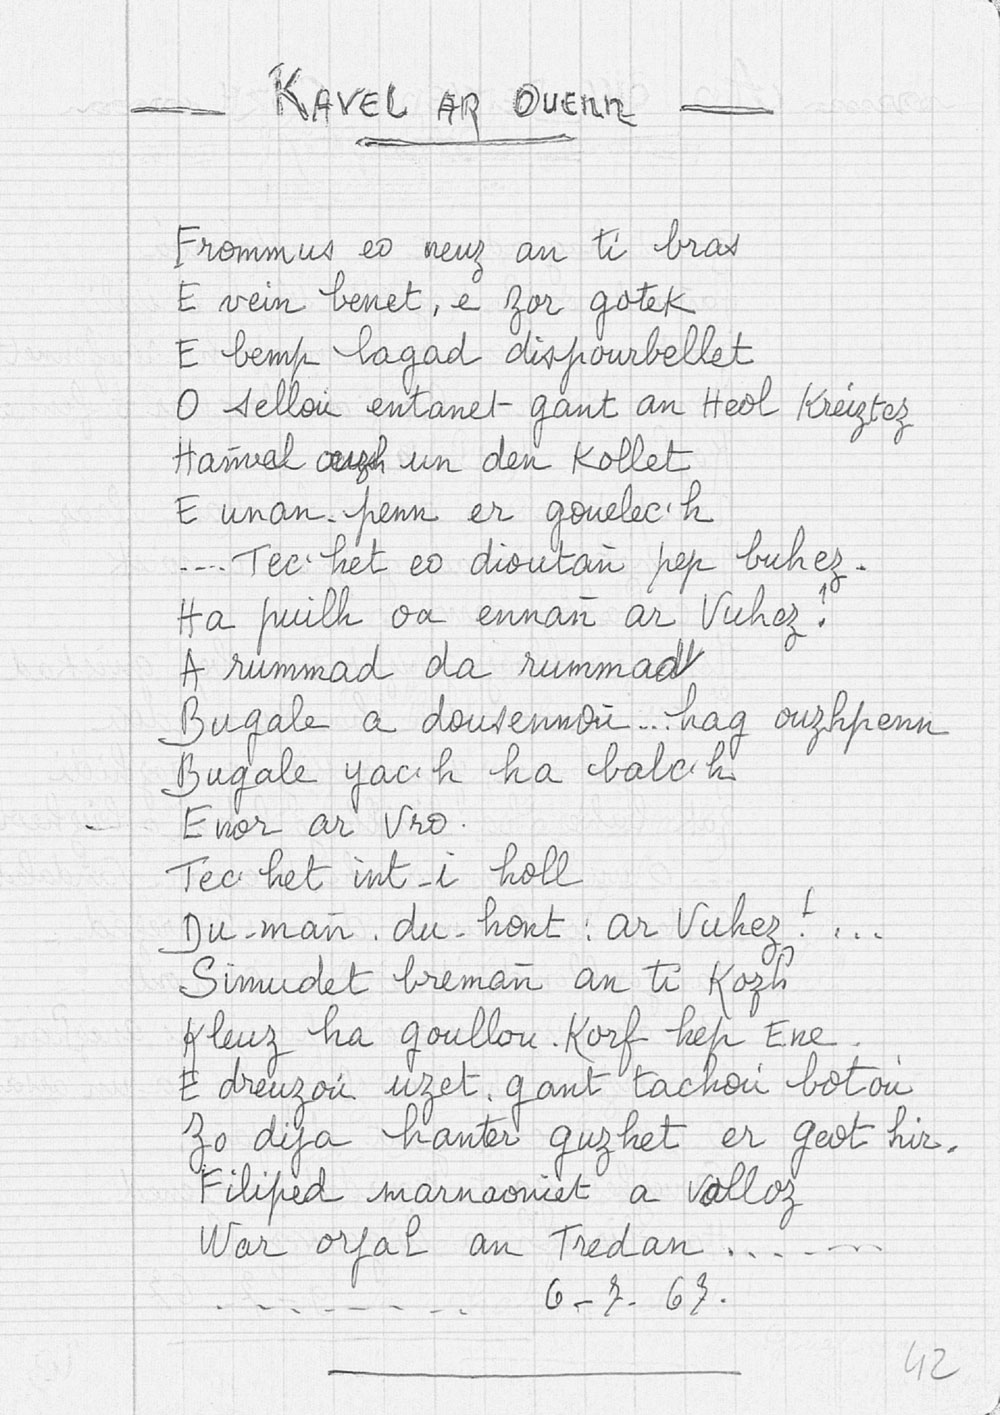 — KAVEL AR OUENN —
Frommus eo neuz an ti bras
E vein benet, e zor gotek
E bemp lagad dispourbellet
O sellou entanet gant an Heol Kreiztez
Hañvel ouzh un den Kollet
E unan-penn er gouelec'h
.... Tec'het eo dioutañ pep buhez.
Ha puilh oa ennañ ar Vuhez!
A rummad da rummad
Bugale a dousennoù... hag ouzhpenn
Bugale yac'h ha balc'h
Enor ar Vro.
Tec'het int-i holl
Du-mañ. du-hont : ar Vuhez! ...
Simudet bremañ an ti Kozh
Kleuz ha goullou. Korf hep Ene.
E dreuzoù uzet. gant tachoù botoù
Zo dija hanter guzhet er geot hir.
Filiped marnaoniet a volloz
War orjal an Tredan .......
......... 6-7-67.
42